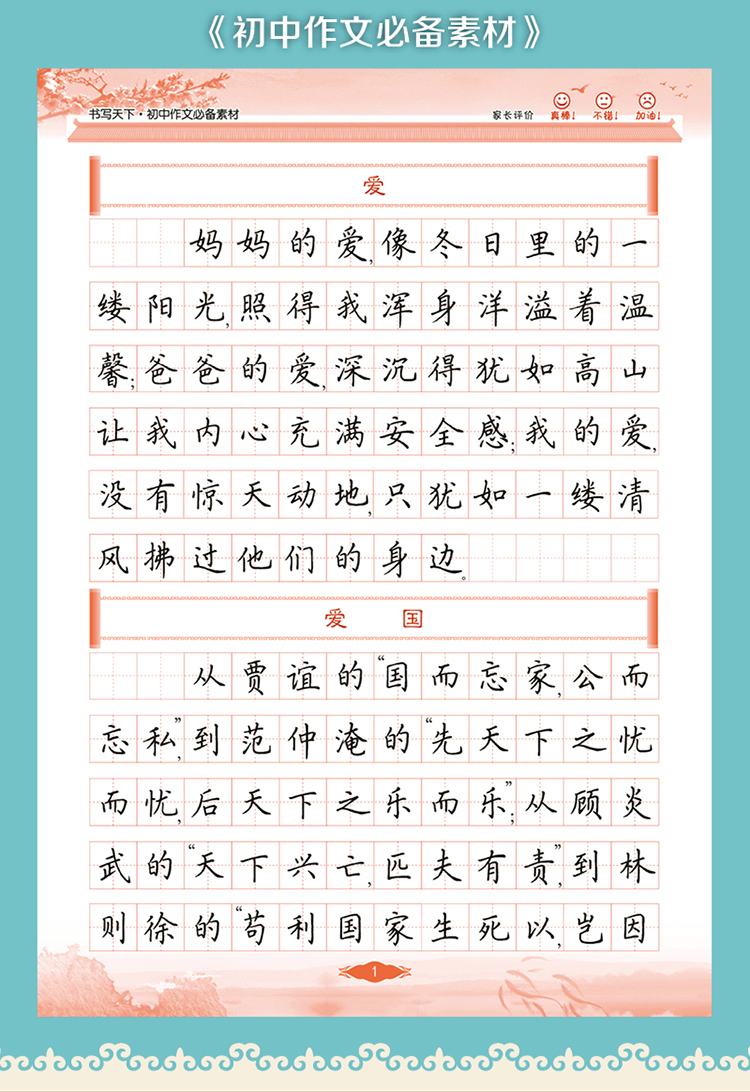 《初中作文必备素材》
书写天下·初中作文必备素材
家长评价 真棒! 不错! 加油!
爱
妈妈的爱,像冬日里的一
缕阳光,照得我浑身洋溢着温
馨;爸爸的爱,深沉得犹如高山
让我内心充满安全感;我的爱,
没有惊天动地,只犹如一缕清
风拂过他们的身边。
爱 国
从贾谊的“国而忘家,公而
忘私”,到范仲淹的“先天下之忧
而忧,后天下之乐而乐”;从顾炎
武的“天下兴亡,匹夫有责”,到林
则徐的“苟利国家生死以,岂因
1